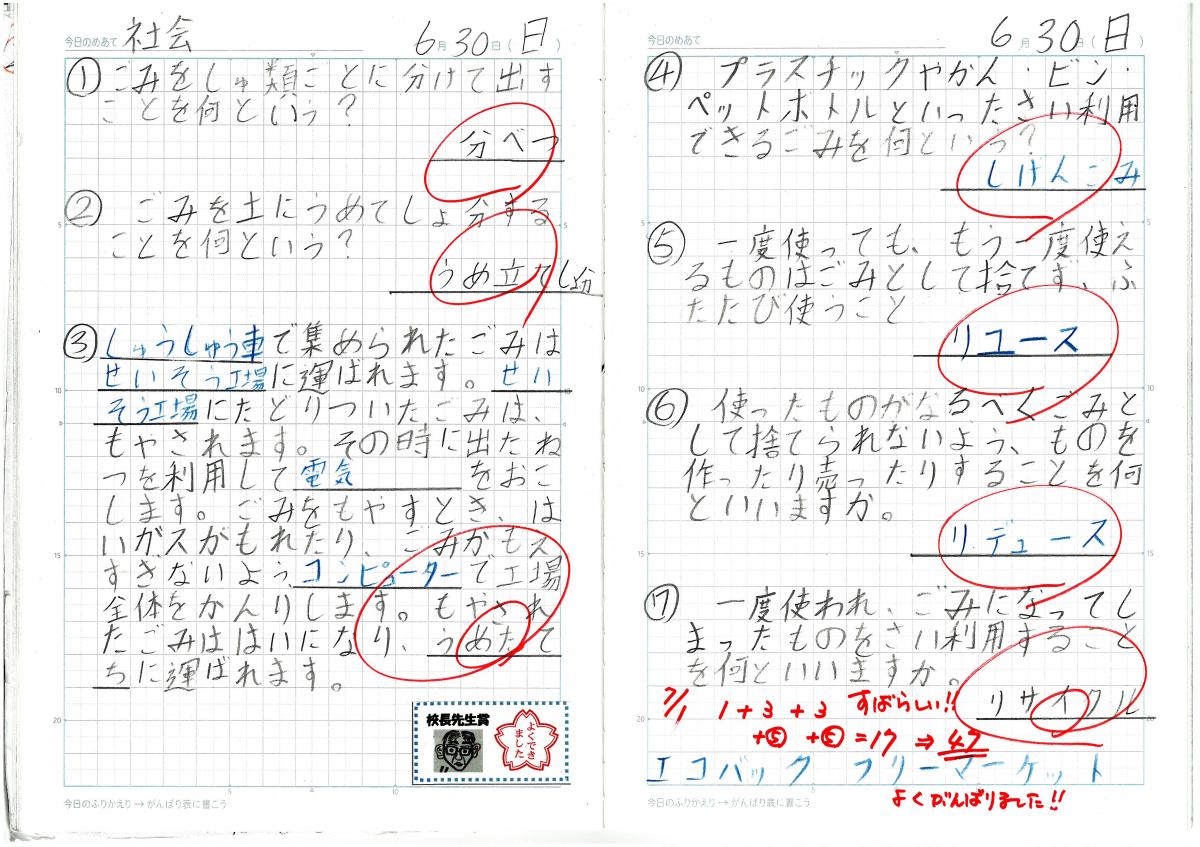 今日のめあて 社会 6月30日(日)
① ごみをしゅ類ごとに分けて出す
ことを何という？
分べつ
② ごみを土にうめてしょ分する
ことを何という？
うめ立てしょ分
③ しゅうしゅう車で集められたごみは
せいそう工場に運ばれます。せい
そう工場にたどりついたごみは、
もやされます。その時に出たね
つを利用して電気をおこ
します。ごみをもやすとき、は
いガスがもれたり、ごみがもえ
すぎないよう、コンピューターで工場
全体をかんりします。もやされ
たごみははいになり、うめたて
ちに運ばれます。
校長先生賞
よくでき
ました
今日のふりかえり→がんばり表に書こう
今日のめあて 6月30日
④ プラスチックやかん・ビン・
ペットボトルといったさい利用
できるごみを何という？
しげんごみ
⑤ 一度使っても、もう一度使え
るものはごみとして捨てず、ふ
たたび使うこと
リユース
⑥ 使ったものがなるべくごみと
して捨てられないよう、ものを
作ったり売ったりすることを何
といいますか。
リデュース
⑦ 一度使われ、ごみになってし
まったものをさい利用すること
を何といいますか。
リサイクル
7/1 1+3+3 すばらしい!!
+⑤ +⑤ =17 ⇒ 47
エコバック フリーマーケット
今日のふりかえり→がんばり表に書こう
よくがんばりました!!